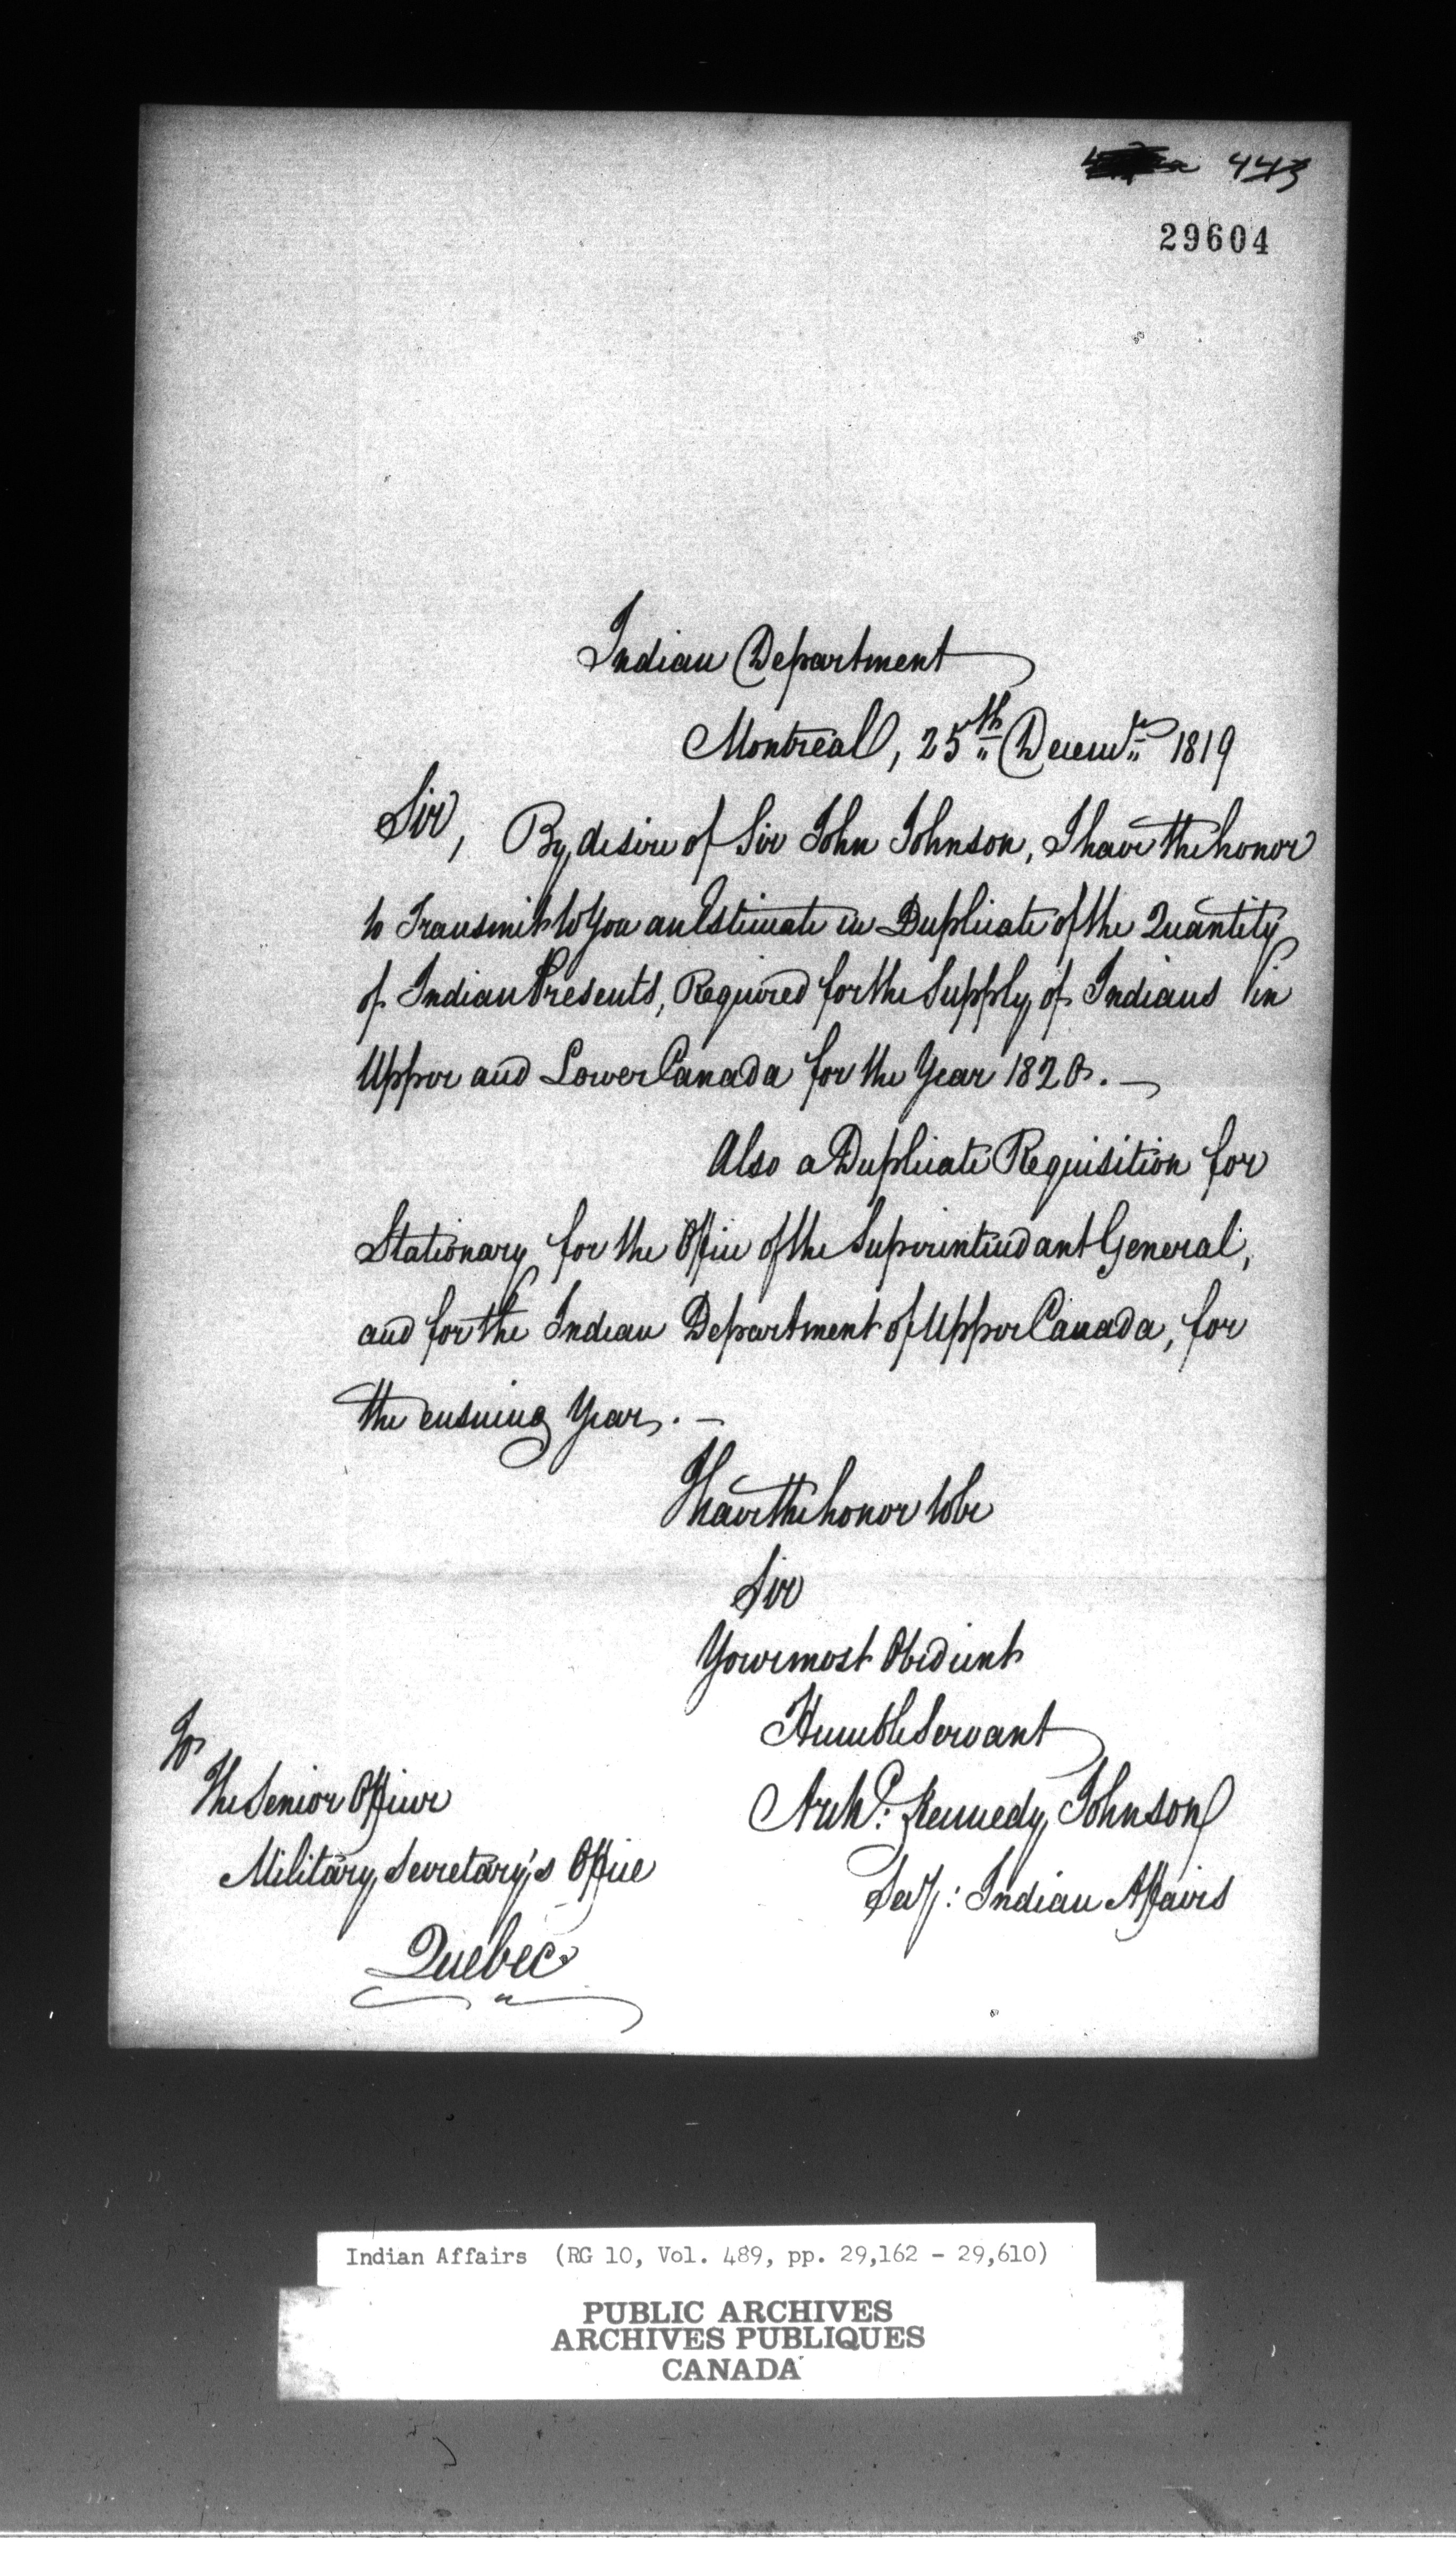 443
29604
Indian Department
Montreal, 25th Decemr 1819
Sir, By desire of Sir John Johnson, I have the honor
to Transmit to You an Estimate in Duplicate of the Quantity
of Indian Presents, Required for the Supply of Indians in
Upper and Lower Canada for the Year 1820. —
Also a Duplicate Requisition for
Stationary for the Office of the Superintendant General,
and for the Indian Department of Upper Canada, for
the ensuing Year. —
I have the honor to be
Sir
Your most Obedient
Humble Servant
Archd. Kennedy Johnson
Secy: Indian Affairs
To
The Senior Officer
Military Secretary's Office
Quebec
Indian Affairs (RG 10, Vol. 489, pp. 29,162 - 29,610)
PUBLIC ARCHIVES
ARCHIVES PUBLIQUES
CANADA